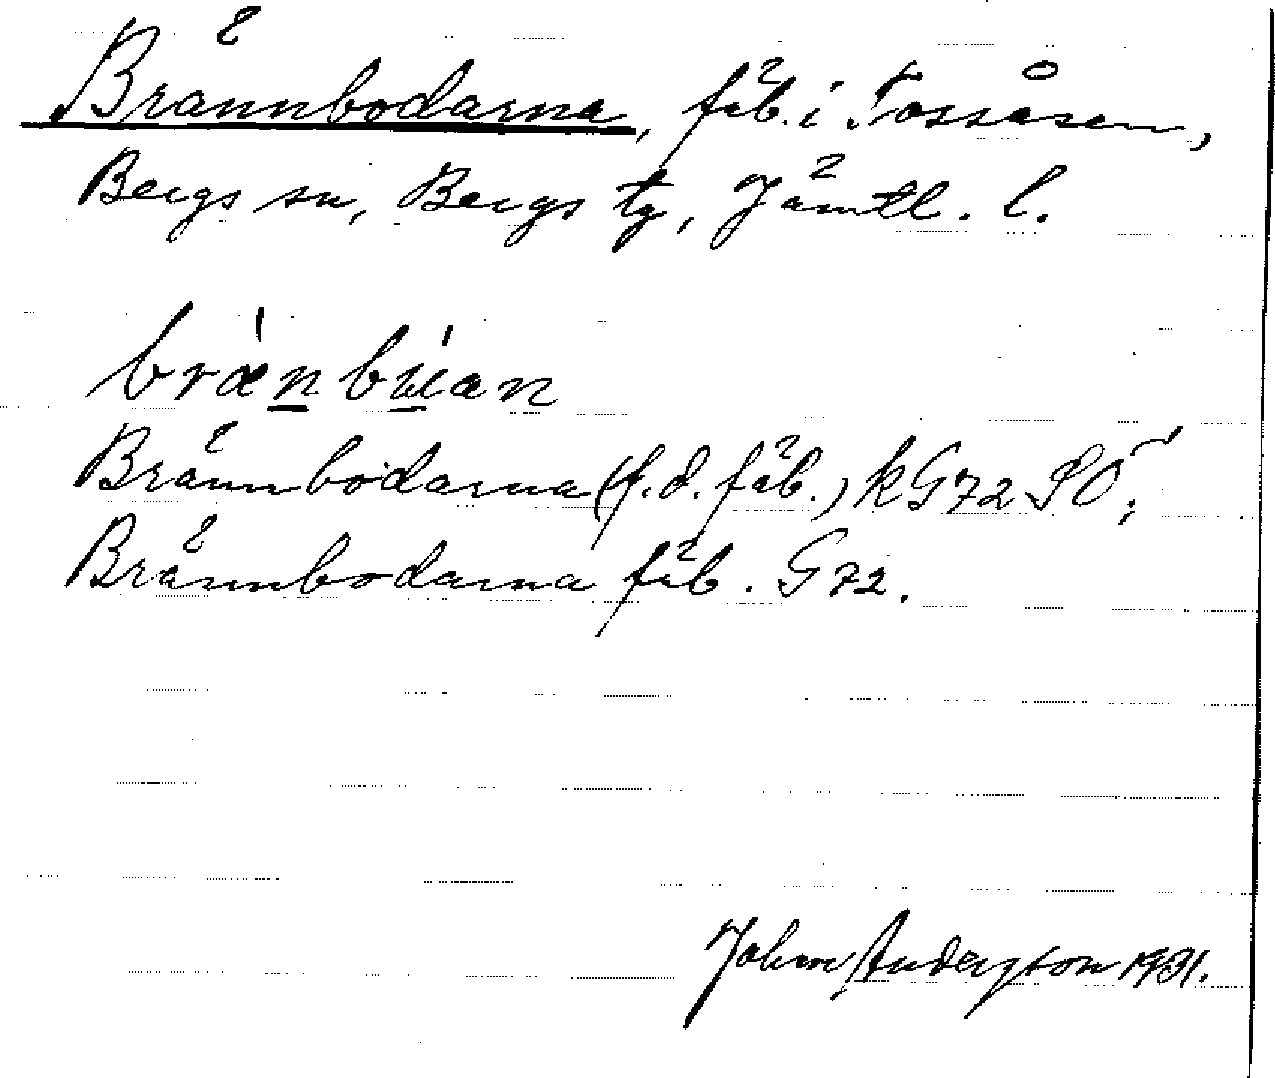 Brännbodarna, fäb. i Tossåsen,
Bergs sn, Bergs tg, Jämtl. l.
bræ̀n bù̱an
Brännbodarna (f.d. fäb.) kG72 SO;
Brännbodarna fäb. G72.
John Anderzson 1931.